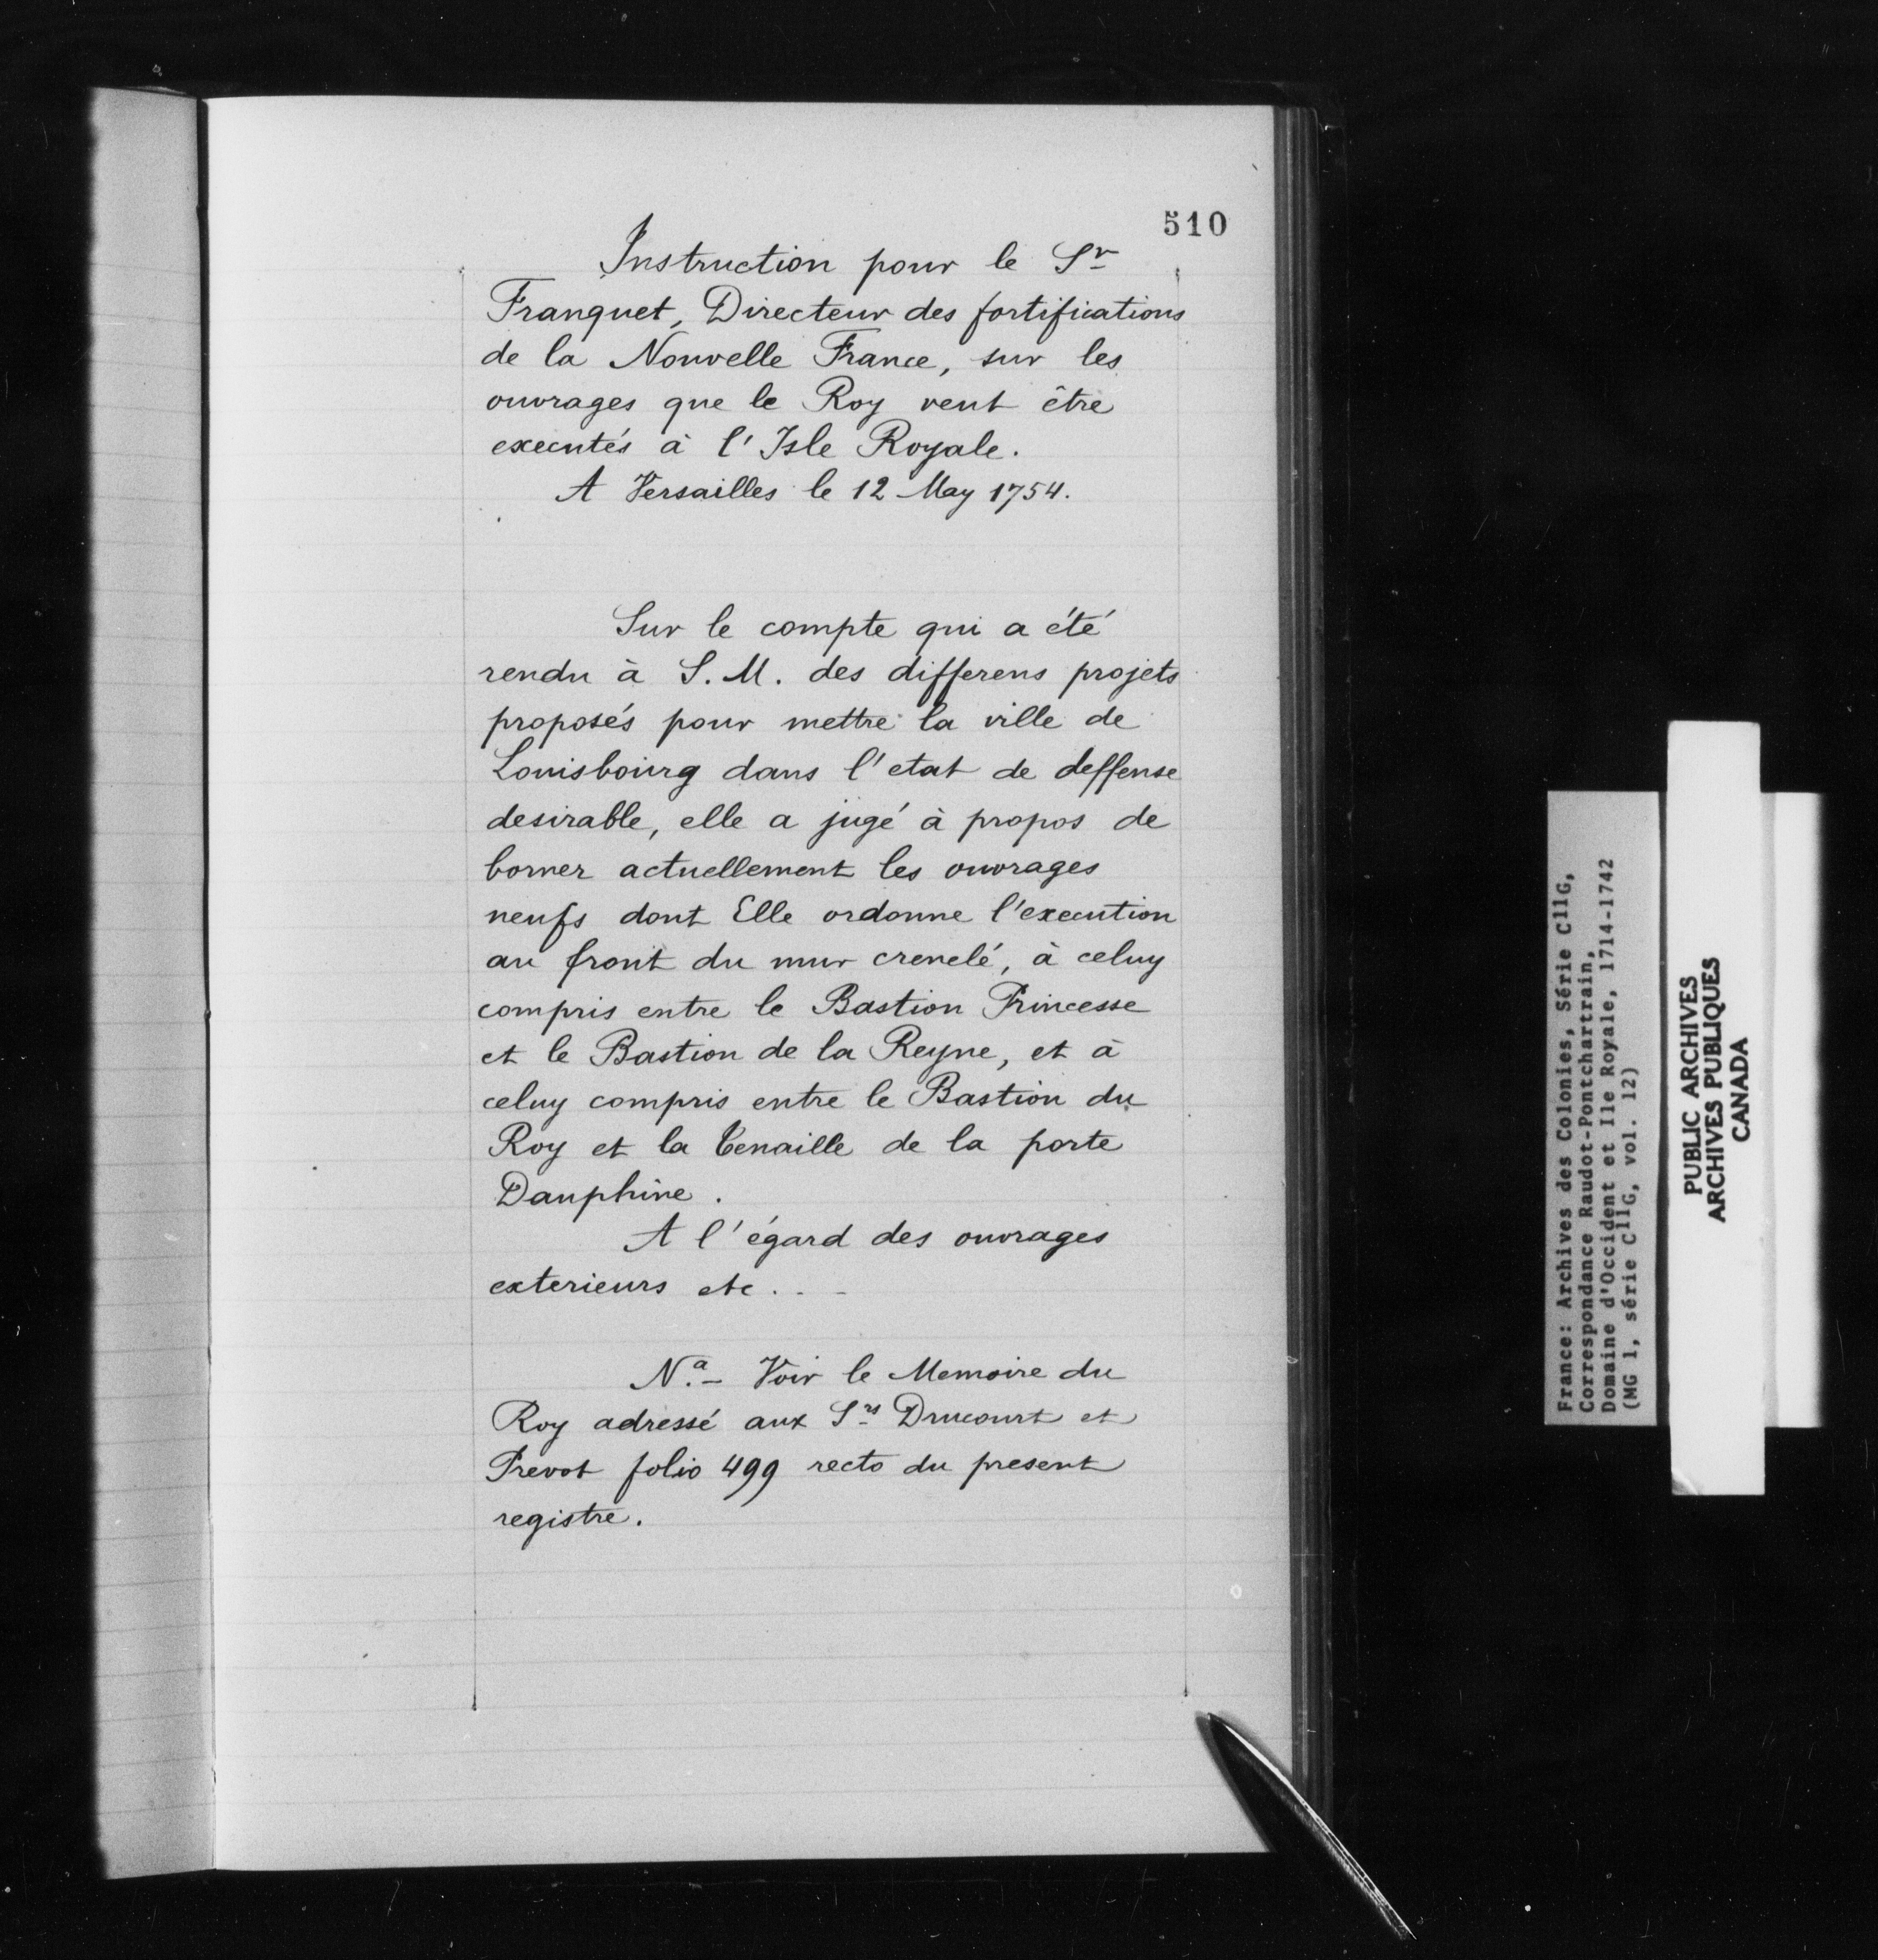 510
Instruction pour le Sr
Franquet, Directeur des fortifications
de la Nouvelle France, sur les
ouvrages que le Roy veut être
executés à l'Isle Royale.
A Versailles le 12 May 1754.
Sur le compte qui a été
rendu à S. M. des differens projets
proposés pour mettre la ville de
Louisbourg dans l'etat de deffense
desirable, elle a jugé à propos de
borner actuellement les ouvrages
neufs dont Elle ordonne l'execution
au front du mur crenelé, à celuy
compris entre le Bastion Princesse
et le Bastion de la Reyne, et à
celuy compris entre le Bastion du
Roy et la Tenaille de la porte
Dauphine.
A l'égard des ouvrages
exterieurs etc . . -
Na. - Voir le Memoire du
Roy adressé aux Srs Drucourt et
Prevot folio 499 recto du present
registre.
France: Archives des Colonies, Série C11G,
Correspondance Raudot-Pontchartrain,
Domaine d'Occident et Ile Royale, 1714-1742
(MG 1, série C11G, vol. 12)
PUBLIC ARCHIVES
ARCHIVES PUBLIQUES
CANADA